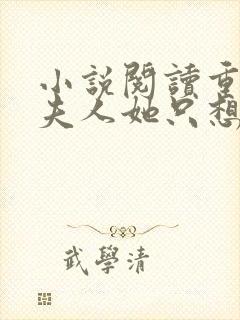 小説閱讀重
夫人她只想
武學清